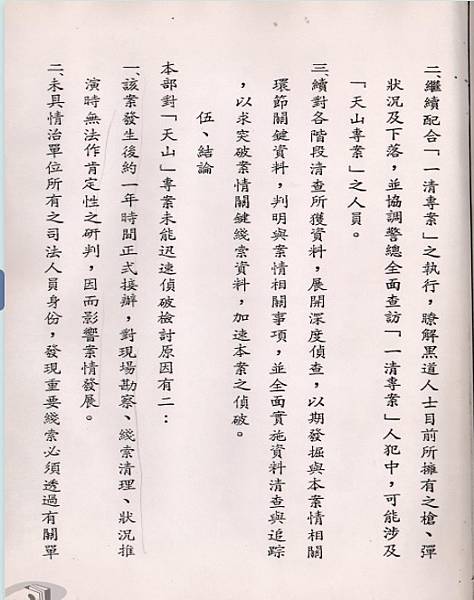 二、繼續配合「一清專案」之執行，瞭解黑道人士目前所擁有之槍、彈
狀況及下落，並協調警總全面查訪「一清專案」人犯中，可能涉及
「天山專案」之人員。
三、續對各階段清查所獲資料，展開深度偵查，以期發掘與本案情相關
環節關鍵資料，判明與案情相關事項，並全面實施資料清查與追踪
，以求突破案情關鍵綫索資料，加速本案之偵破。
伍、結論
本部對「天山」專案未能迅速偵破檢討原因有二：
一、該案發生後約一年時間正式接辦，對現場勘察、綫索清理、狀況推
演時無法作肯定性之研判，因而影響案情發展。
二、未具情治單位所有之司法人員身份，發現重要綫索必須透過有關單